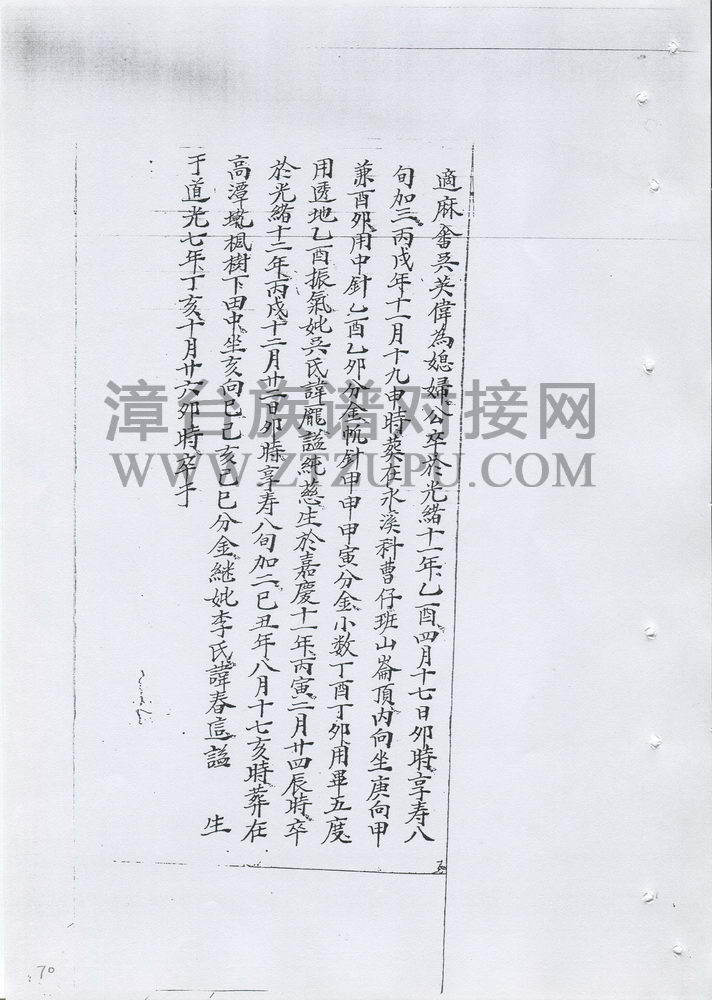 適麻畬吳英偉為媳婦公卒於光緒十一年乙酉四月十七日卯時享寿八
旬加三丙戌年十一月十九申時葬在永溪科曹仔班山崙頂内向坐庚向甲
兼酉卯用中針乙酉乙卯分金帆針甲申甲寅分金小数丁酉丁卯用畢五度
用透地乙酉振氣妣吳氏諱龎謚純慈生於嘉慶十一年丙寅二月廿四辰時卒
於光緒十二年丙戌十二月廿一日卯時享寿八旬加二己丑年八月十七亥時葬在
高潭墘楓樹下田中坐亥向巳己亥己巳分金継妣李氏諱春這謚 生
于道光七年丁亥十月廿六卯時卒于
漳台族谱对接网
WWW.ZTZUPU.COM
70